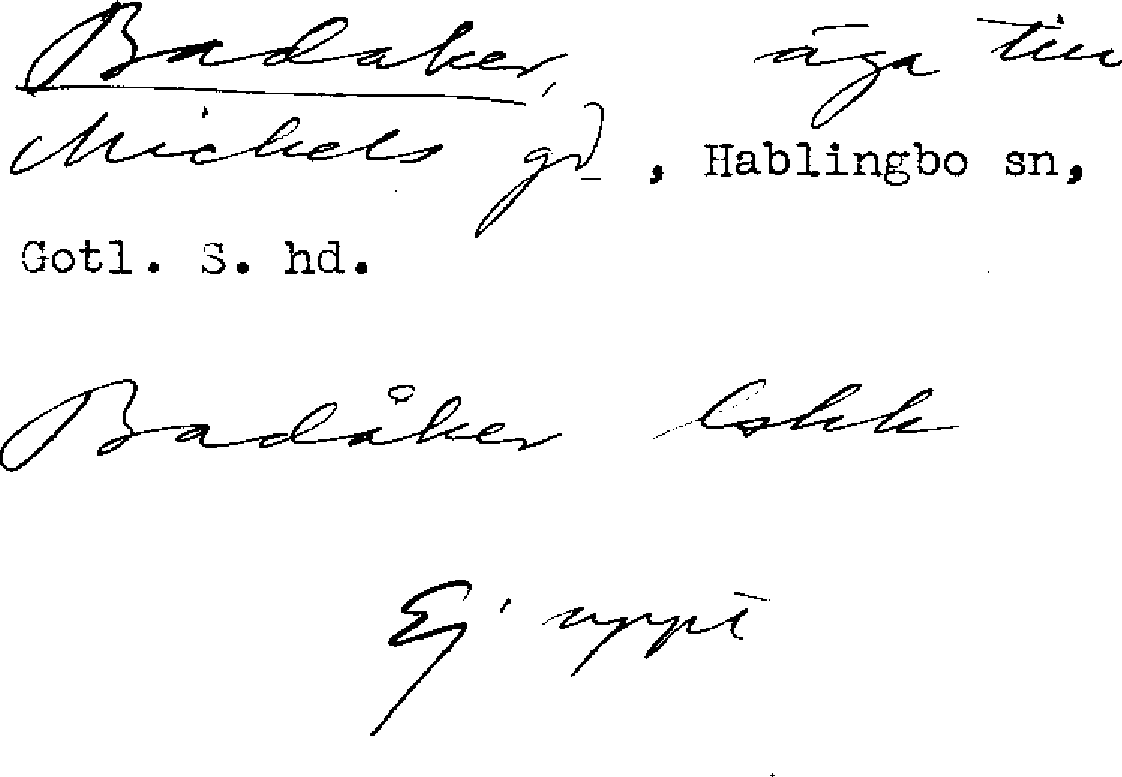 Badåker, äga till
Mickels gd, Hablingbo sn,
Gotl. S. hd.
Badåker lskk
Ej uppt